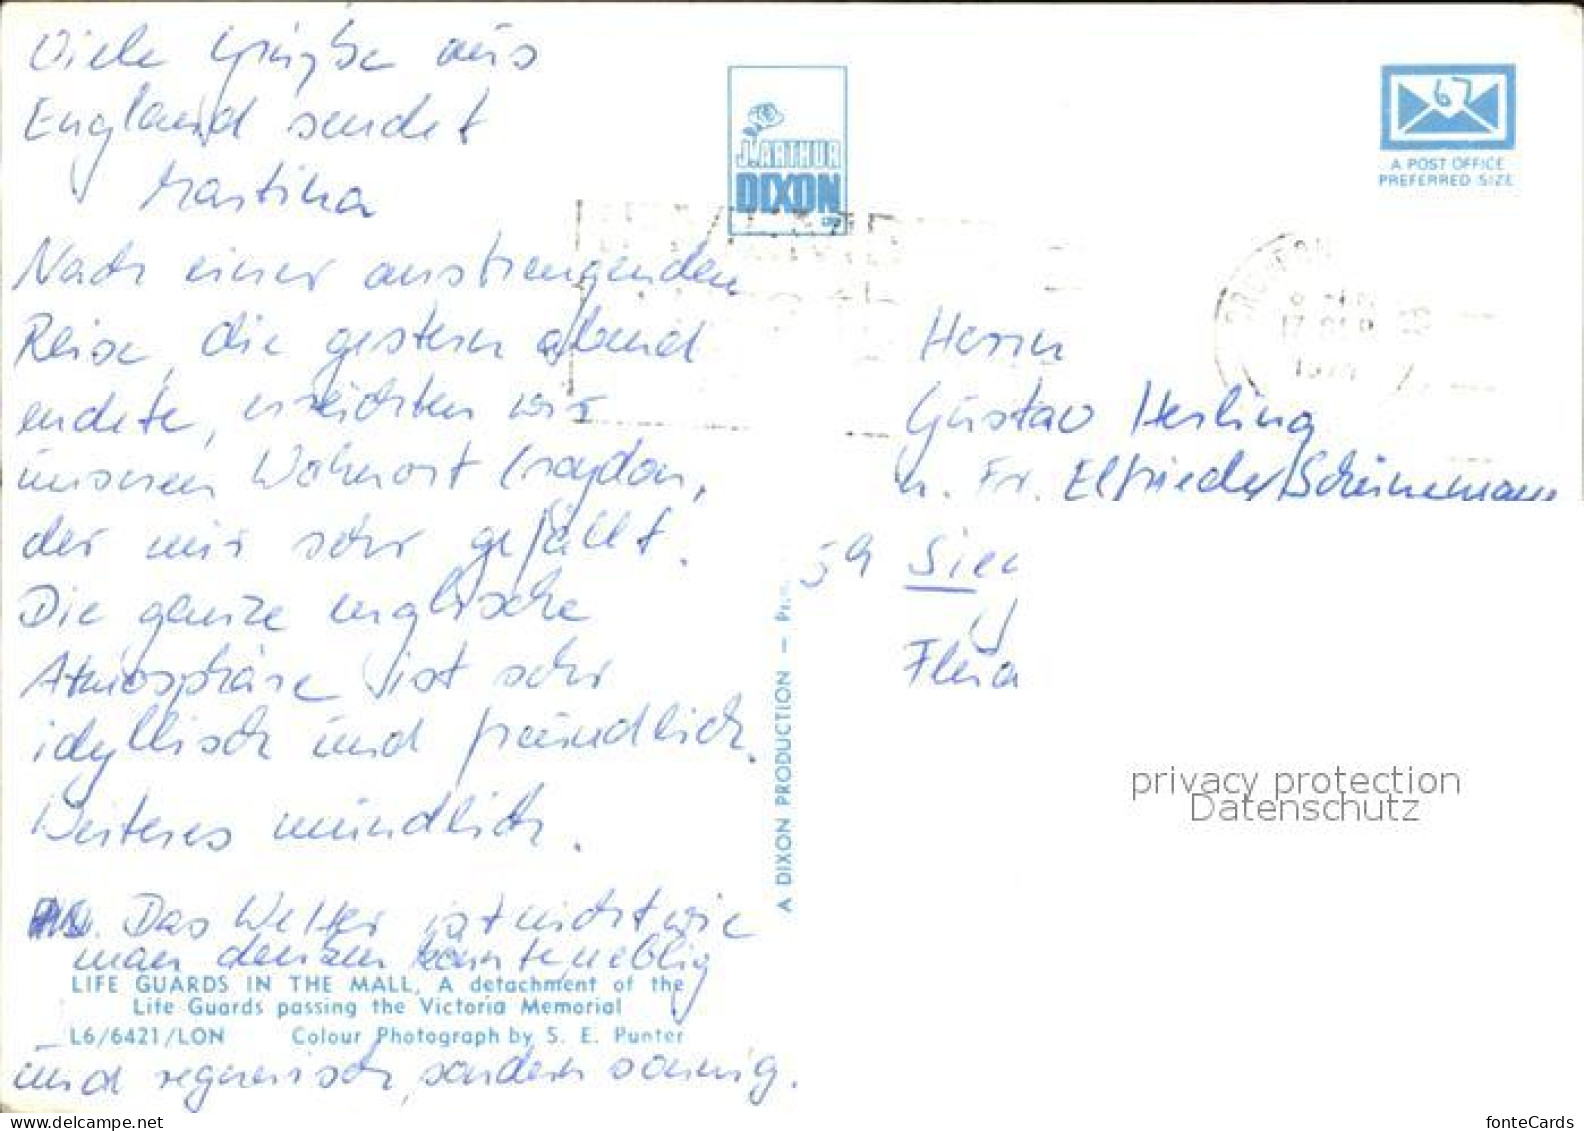 Viele Grüße aus
England sendet
Martina
Nach einer anstrengenden
Reise, die gestern abend
endete, erreichten wir
unseren Wohnort Croydon,
der mir sehr gefällt.
Die ganze englische
Atmosphäre ist sehr
idyllisch und freundlich.
Weiteres mündlich.
Das Wetter ist nicht wie
man denken könnte neblig
und regnerisch, sondern sonnig.
LIFE GUARDS IN THE MALL, A detachment of the
Life Guards passing the Victoria Memorial
L6/6421/LON Colour Photograph by S. E. Punter
J. ARTHUR
DIXON
A DIXON PRODUCTION —
67
A POST OFFICE
PREFERRED SIZE
Herrn
Gustav Herling
u. Fr. Elfriede Scheinemann
59
privacy protection
Datenschutz
fonteCards